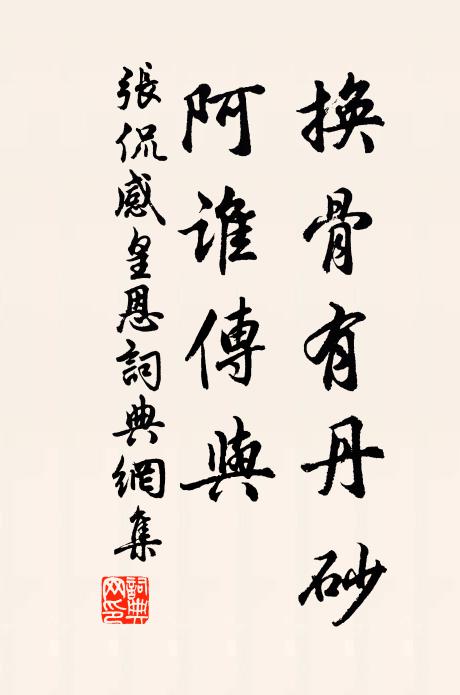 換骨有丹砂
阿誰傳與
張侃感皇恩詞典網集
詞典網印